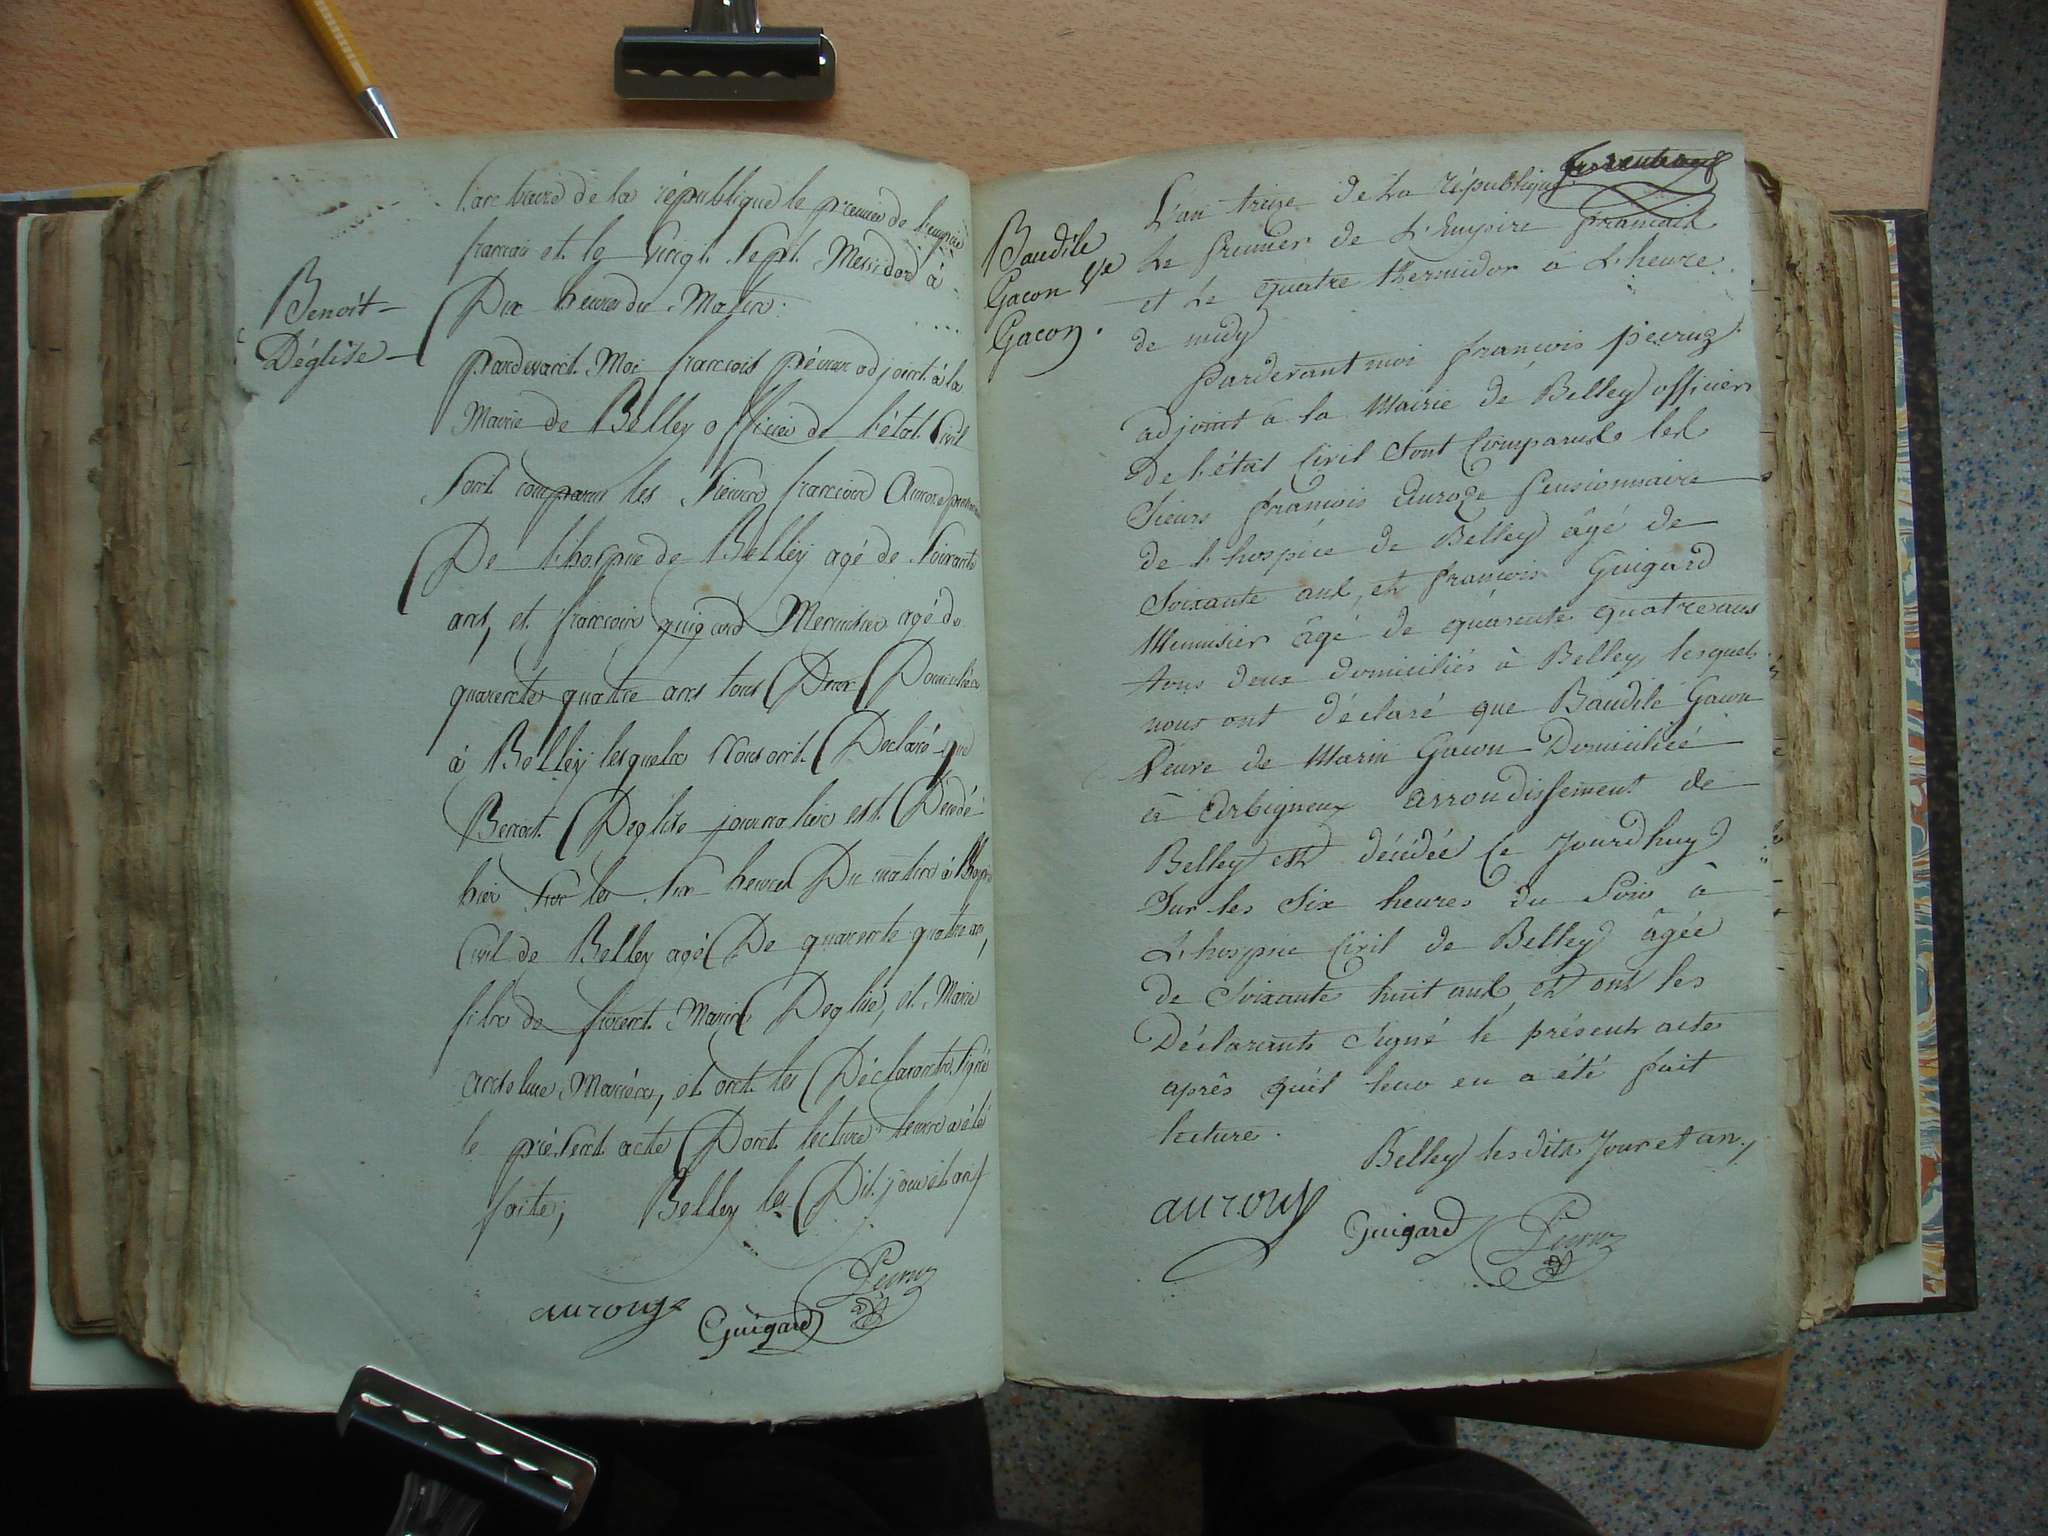 Benoit
Déglise
L'an treize de la république le premier de l'empire
francais et le vingt sept Messidor à
Dix heures du Matin.
pardevant Moi francois pécruz adjoint à la
Mairie de Belley officier de l'état Civil
Sont comparus les Sieurs francois
De l'hospice de Belley agé de Soixante
ans, et francois guigard Menuisier agé de
quarente quatre ans tous Deux Domiciliés
à Belley lesquels Nous ont Déclaré que
Benoit Deglise journalier est Décédé
hier sur les six heures Du matin à l'hospice
Civil de Belley agé De quarente quatre ans,
fils de Marin Deglise, et Marie
et ont les Déclarants Signé
le présent acte Dont lecture leur a été
faite, Belley les Dit jour et an
aurouze
Guigard
Pecruz
Baudile
Gacon Ve
Gacon.
L'an treize de La république
Le premier de L'Empire francais
et Le quatre thermidor a L'heure
de midy
Pardevant moi francois pecruz
adjoint à la Mairie de Belley officier
de l'état Civil Sont Comparus les
Sieurs francois auroze pensionnaire
de L'hospice de Belley âgé de
Soixante ans, et francois Guigard
Menuisier âgé de quarente quatre ans
tous deux domiciliés à Belley, lesquels
nous ont déclaré que Baudile Gacon
Veuve de Marin Gacon Domiciliée
à Arbigneux arrondissement de
Belley est décédée Ce Jourdhuy
Sur les Six heures du Soir à
L'hospice Civil de Belley âgée
de Soixante huit ans, et ont les
Déclarants Signé le présent acte
après quil leur en a été fait
lecture.
Belley les dits Jour et an,
aurouze
Guigard
Pecruz